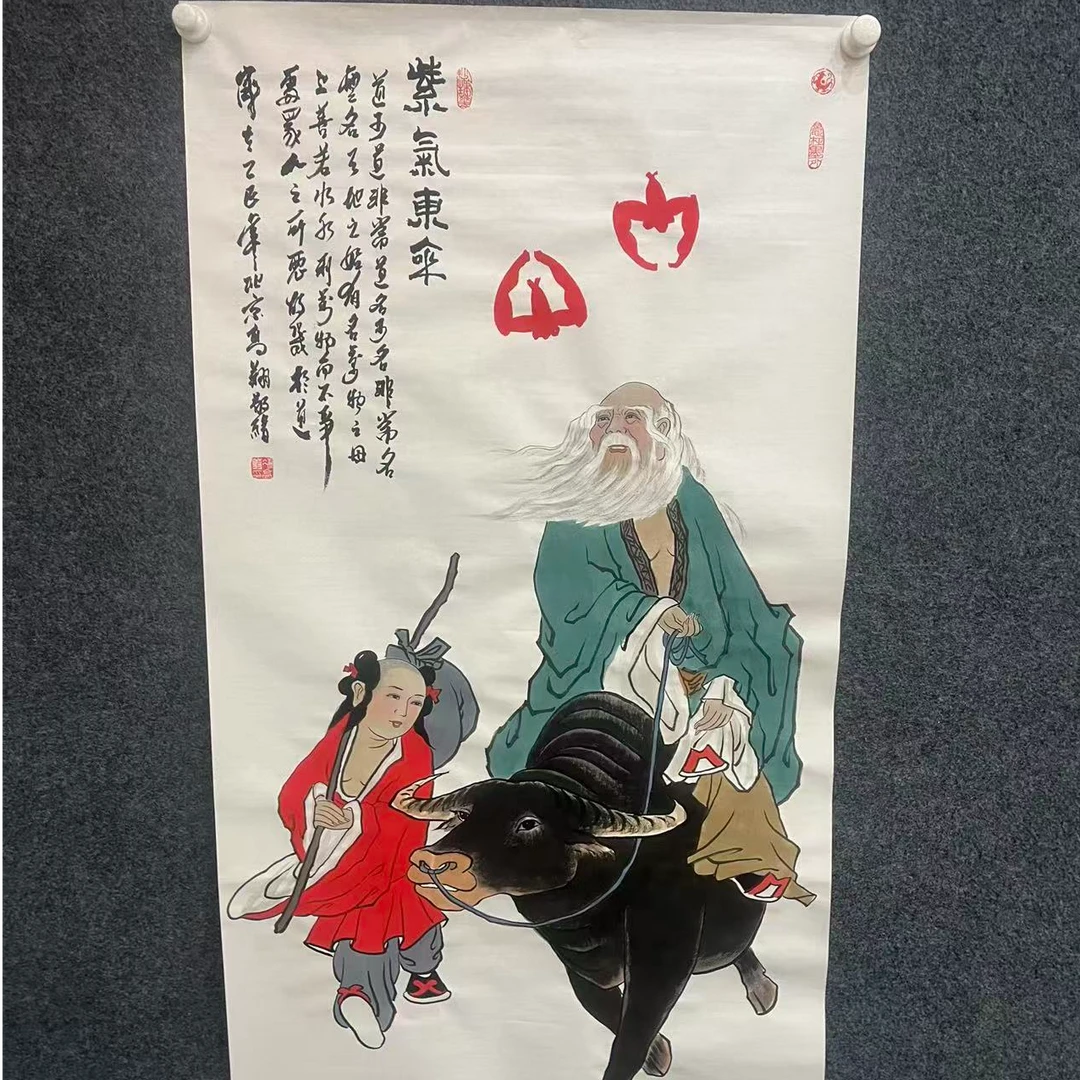 紫氣東來
道可道非常道名可名非常名
無名天地之始有名萬物之母
上善若水水利萬物而不爭
處眾人之所惡故幾於道
歲在乙巳年北京高翔敬繪